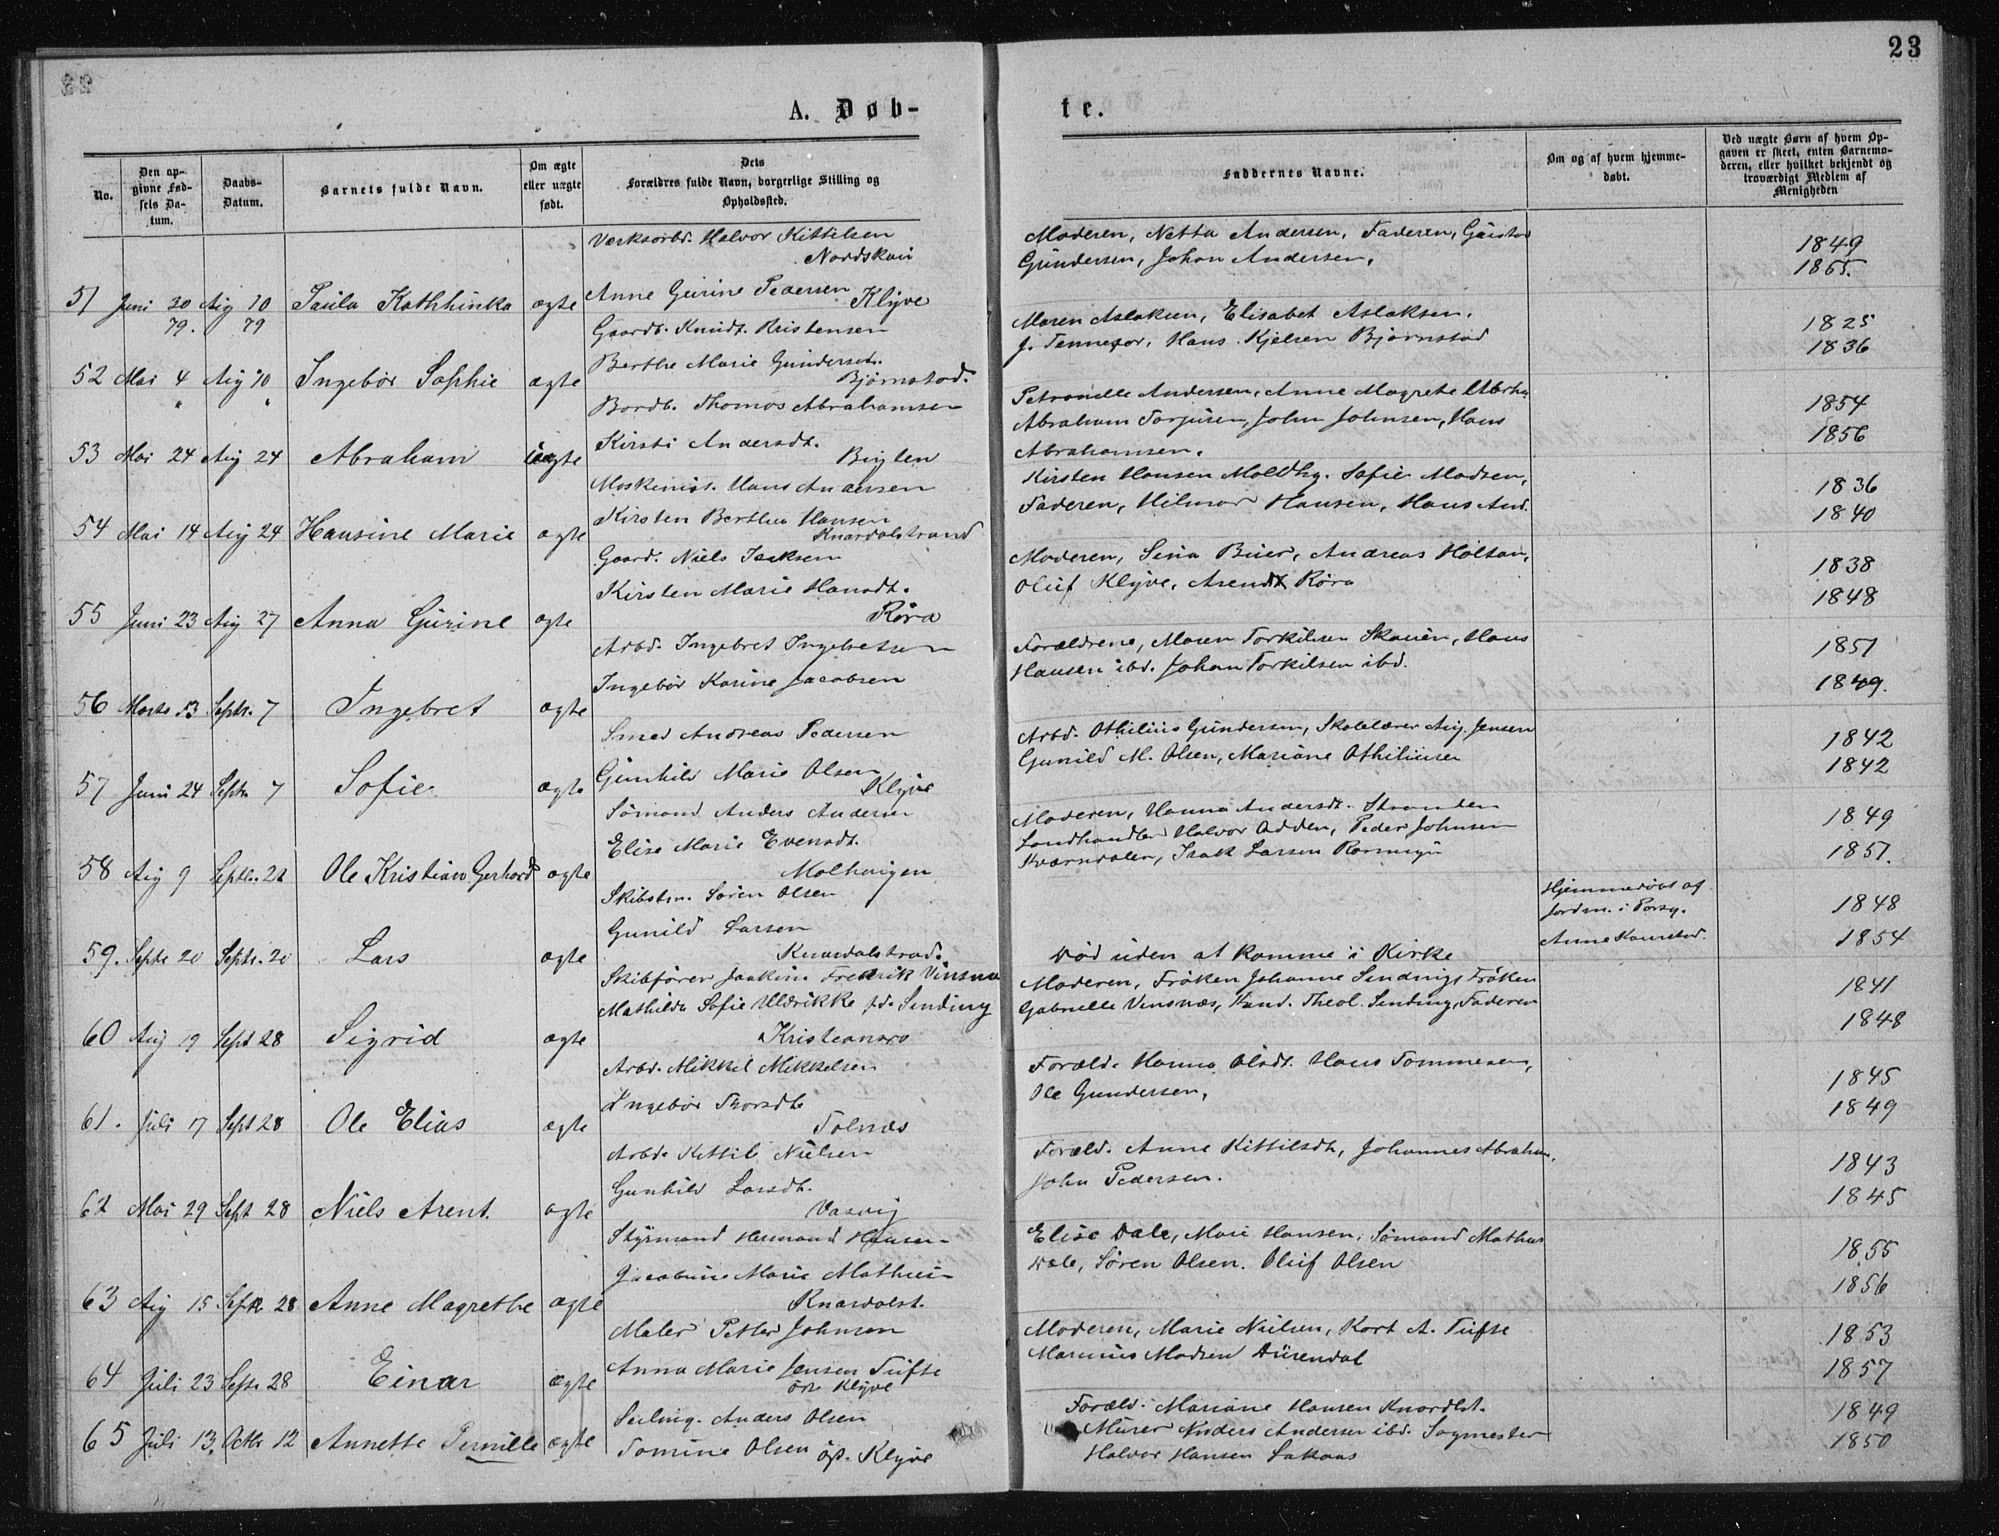 23
A. Døb-
te.
No.
Den op-
givne Fød-
sels Da-
tum.
Daabs-
Datum.
Barnets fulde Navn.
Om ægte
eller uægte
født.
Dets
Forældres fulde Navn, borgerlige Stilling og
Opholdssted.
Faddernes Navne.
Om og af hvem hjemme-
døbt.
Ved uægte Børn af hvem Op-
gaven er skeet, enten Barnemo-
deren, eller hvilket bekjendt og
troværdigt Medlem af
Menigheden
Værksarbd. Halvor Kittilsen
Nordskau
51 Juni 30 Aug 10 Paula Kathhinka ægte Anne Gurine Pedersen
79. 79 Klyve
Moderen, Netta Andersen, Faderen, Gustav
Gundersen, Johan Andersen.
1849
1865.
Gaardb. Knudt Kristensen
52 Mai 4 Aug 10 Ingebør Sophie ægte Berthe Marie Gundersdt.
" " Bjørnstad.
Maren Aslaksen, Elisabet Aslaksen.
J. Tennefor, Hans Kjelsen Bjørnstad
1825
1836
Bordb. Thomas Abrahamsen
53 Mai 24 Aug 24 Abraham uægte Kirsti Andersdt.
Petronelle Andersen, Anne Magrete
Abraham Torjusen, John Johnsen, Hans
Abrahamsen.
1854
1856
Maskinist. Hans Andersen
54 Mai 14 Aug 24 Hansine Marie ægte Kirsten Berthea Hansen
Knardalstrand
Kirsten Hansen Moldhg. Sofie Madsen,
Faderen, Hilmar Hansen, Hans And.
1836
1840
Gaard. Niels Isaksen
55 Juni 23 Aug 27 Anna Gurine ægte Kirsten Marie Hansdt.
Røra
Moderen, Sina Buer, Andreas Holtan,
Oluf Klyve, Arendt Røra
1838
1848
Arbd. Ingebret Ingebretsen
56 Marts 13 Septr. 7 Ingebret ægte Ingebør Karine Jacobsen
Forældrene, Maren Torkilsen Skauen, Hans
Hansen ibd. Johan Torkilsen ibd.
1851
1849.
Smed Andreas Pedersen
57 Juni 24 Septr 7 Sofie ægte Gunhild Marie Olsen
Klyve
Arbd. Othilius Gundersen, Skolelærer Aug. Jensen
Gunild M. Olsen, Mariane Othiliusen
1842
1842
Sømand Anders Andersen
58 Aug 9 Septr. 21 Ole Kristian Gerhard ægte Elise Marie Evensdt.
Molhaugen
Moderen, Hanna Andersdt. Stranden
Landhandler Halvor Odden, Peder Johnsen
Kværndalen, Isak Larsen
1849
1851.
Skibstm. Søren Olsen
59. Septr 20 Septr. 20 Lars ægte Gunild Larsen
Knardalstrad.
Død uden at komme i Kirke
Hjemmedøbt af
Jordm. i Porsg.
Anne Kamstad.
1848
1854
Skibfører Joakim Fredrik Vinsnæs
60 Aug 19 Sept 28 Sigrid ægte Mathilda Sofie Uldrikke fd. Sinding
Kristiansro
Moderen, Frøken Johanne Sinding, Frøken
Gabrielle Vinsnæs, Kand. Theol. Sinding, Faderen
1841
1848
Arbd. Mikkel Mikkelsen
61. Juli 17 Sept 28 Ole Elias ægte Ingebør Thorsdt.
Tolnæs
Foræld. Hanna Olsdt. Hans Tommesen,
Ole Gundersen,
1845
1849
Arbd. Kettil Nielsen
62 Mai 29 Sept 28 Niels Arent. ægte Gunhild Larsdt.
Vasvig
Foræld. Anne Kittilsdt, Johannes Abraham.
John Pedersen.
1843
1845
Styrmand Hermand Hansen
63 Aug 15 Sept 28 Anne Magrethe ægte Jacobine Marie Mathisen
Knardalst.
Elise Dale, Mari Hansen, Sømand Mathias
Dale, Søren Olsen. Oluf Olsen
1855
1856
Maler Petter Johnsen
64 Juli 23 Sept 28 Einar ægte Anna Marie Jensen Tufte
Klyve
Moderen, Marie Nielsen, Kort A. Tufte
Marinius Madsen Durendal
1853
1857
Anders Olsen
65 Juli 13 Octbr 12 Annette Pernille ægte Tomine Olsen øs. Klyve
Foræld. Mariane Hansen Knardlst.
Murer Anders Andersen ibd. Sagmester
Halvor Hansen
1849
1850